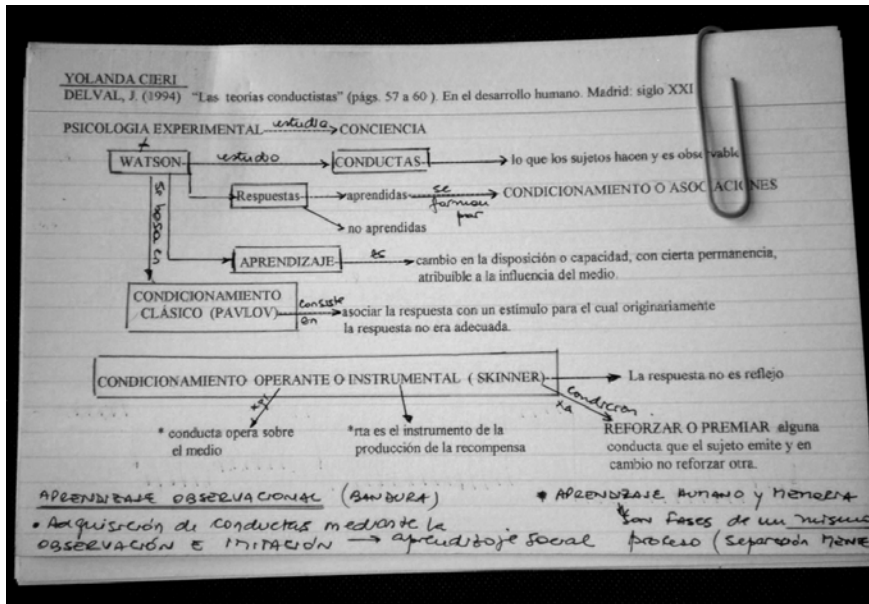 YOLANDA CIERI
DELVAL, J. (1994) "Las teorías conductistas" (págs. 57 a 60 ). En el desarrollo humano. Madrid: siglo XXI
PSICOLOGIA EXPERIMENTAL estudia CONCIENCIA
WATSON estudio CONDUCTAS lo que los sujetos hacen y es observable
se basa en
Respuestas aprendidas se forman por CONDICIONAMIENTO O ASOCIACIONES
no aprendidas
APRENDIZAJE es cambio en la disposición o capacidad, con cierta permanencia,
atribuible a la influencia del medio.
CONDICIONAMIENTO
CLÁSICO (PAVLOV) consiste en asociar la respuesta con un estímulo para el cual originariamente
la respuesta no era adecuada.
CONDICIONAMIENTO OPERANTE O INSTRUMENTAL ( SKINNER) La respuesta no es reflejo
condicion.
* conducta opera sobre
el medio
*rta es el instrumento de la
producción de la recompensa
REFORZAR O PREMIAR alguna
conducta que el sujeto emite y en
cambio no reforzar otra.
APRENDIZAJE OBSERVACIONAL (BANDURA)
• Adquisición de conductas mediante la
OBSERVACIÓN E IMITACIÓN → aprendizaje social
• APRENDIZAJE HUMANO y MEMORIA
son fases de un mismo
proceso (separación MENE